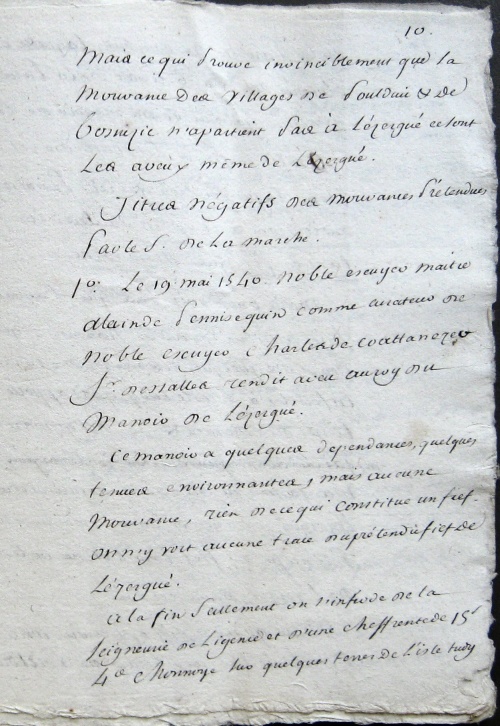 10.
Mais ce qui prouve invinciblement que la
Mouvance des villages de Poulduic & de
Bosnizic n'apartient pas à Lézergué ce sont
Les aveux même de Lézergué.
Titres négatifs des mouvances prétendues
par le S. de La marche.
1o. Le 19 mai 1540. noble escuyer maitre
alain de Pennisequin comme curateur de
noble escuyer Charles de coattanezre
Sr. des salles rendit aveu au roy du
Manoir de Lézergué.
Ce manoir a quelques dependances, quelques
tenues environnantes, mais aucune
Mouvance, rien de ce qui Constitue un fief.
on n'y voit aucune trace du prétendu fief de
Lézergué.
a la fin seullement on s'infeode de la
seigneurie de Ligenie et d'une cheffrente de 15s
4d monnoye sur quelques terres de L'isle tudy